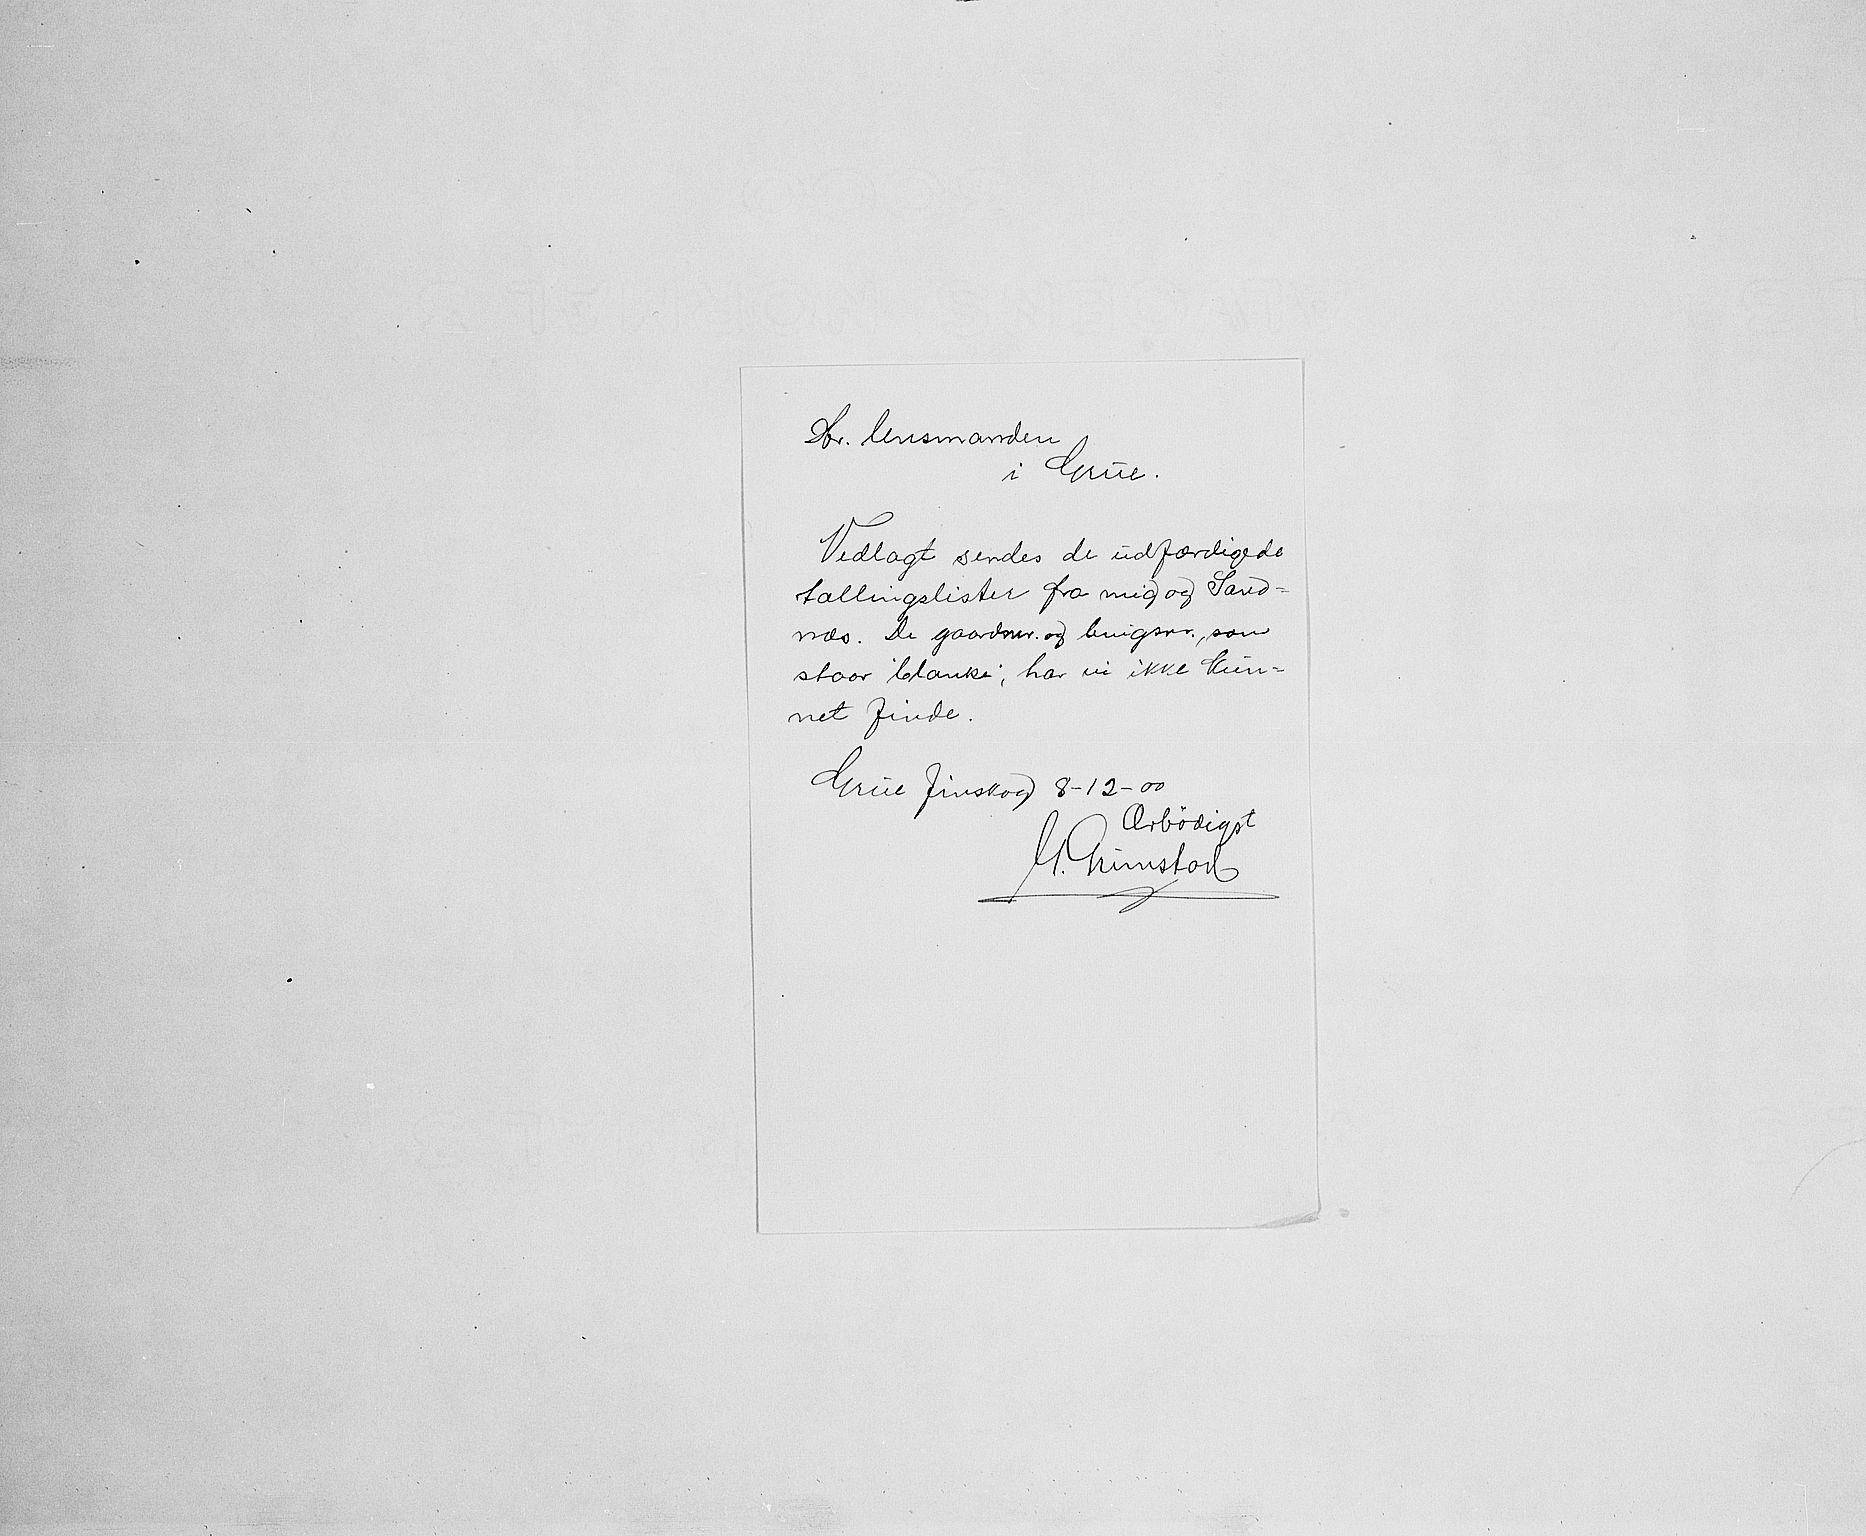 Hr. lensmanden
i Grue.
Vedlagt sendes de udfærdigede
tællingslister fra mig og Sand=
næs. De gaardsnr. og brugsnr., som
staar "blanke", har vi ikke kun=
net finde.
Grue Finskog 8-12-00
Ærbödigst
G. Grimstad